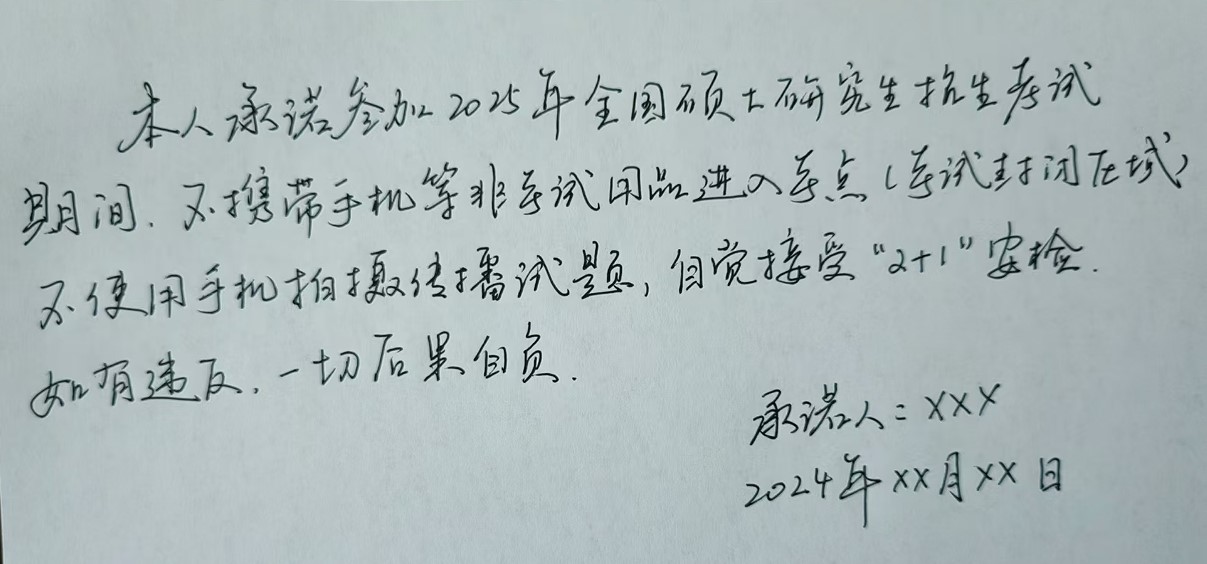 本人承诺参加2025年全国硕士研究生招生考试
期间.不携带手机等非考试用品进入考点(考试封闭区域)
不使用手机拍摄传播试题,自觉接受“2+1”安检.
如有违反.一切后果自负.
承诺人:XXX
2024年XX月XX日